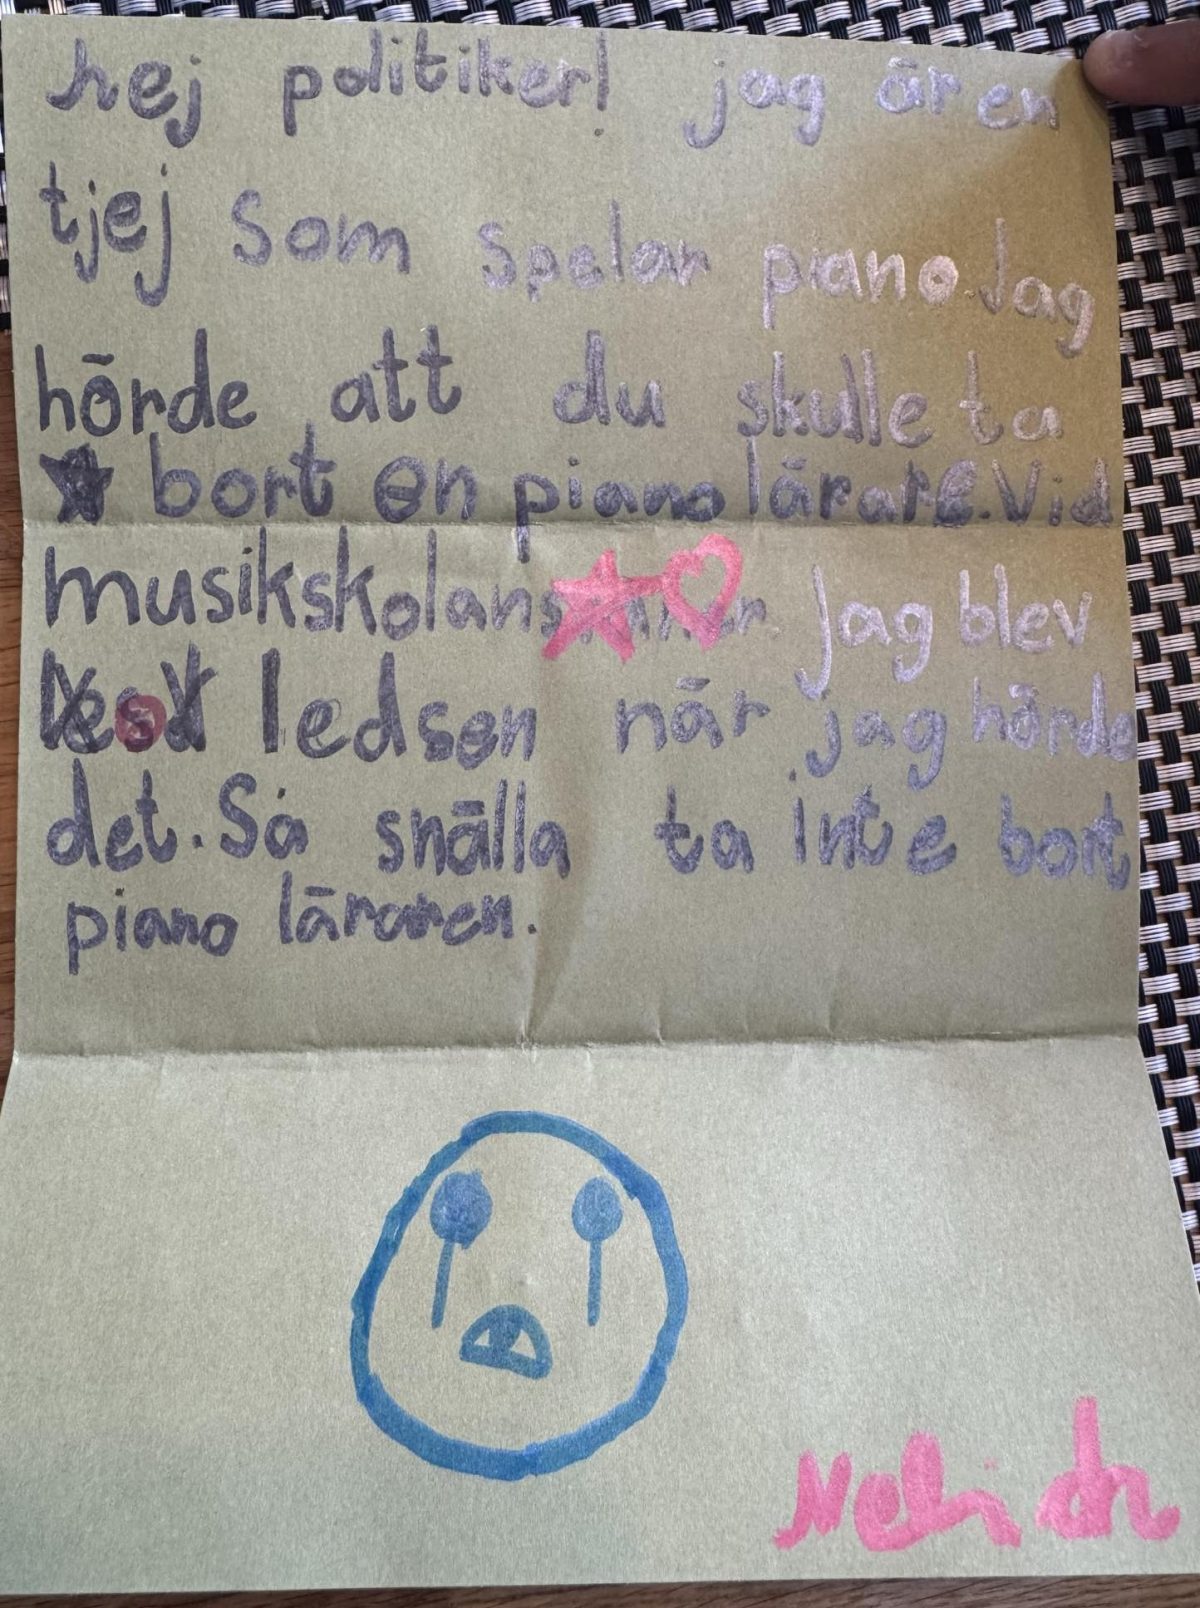 hej politiker! jag är en
tjej som spelar piano. Jag
hörde att du skulle ta
bort en piano lärare. Vid
musikskolans jag blev
ledsen när jag hörde
det. Så snälla ta inte bort
piano läraren.